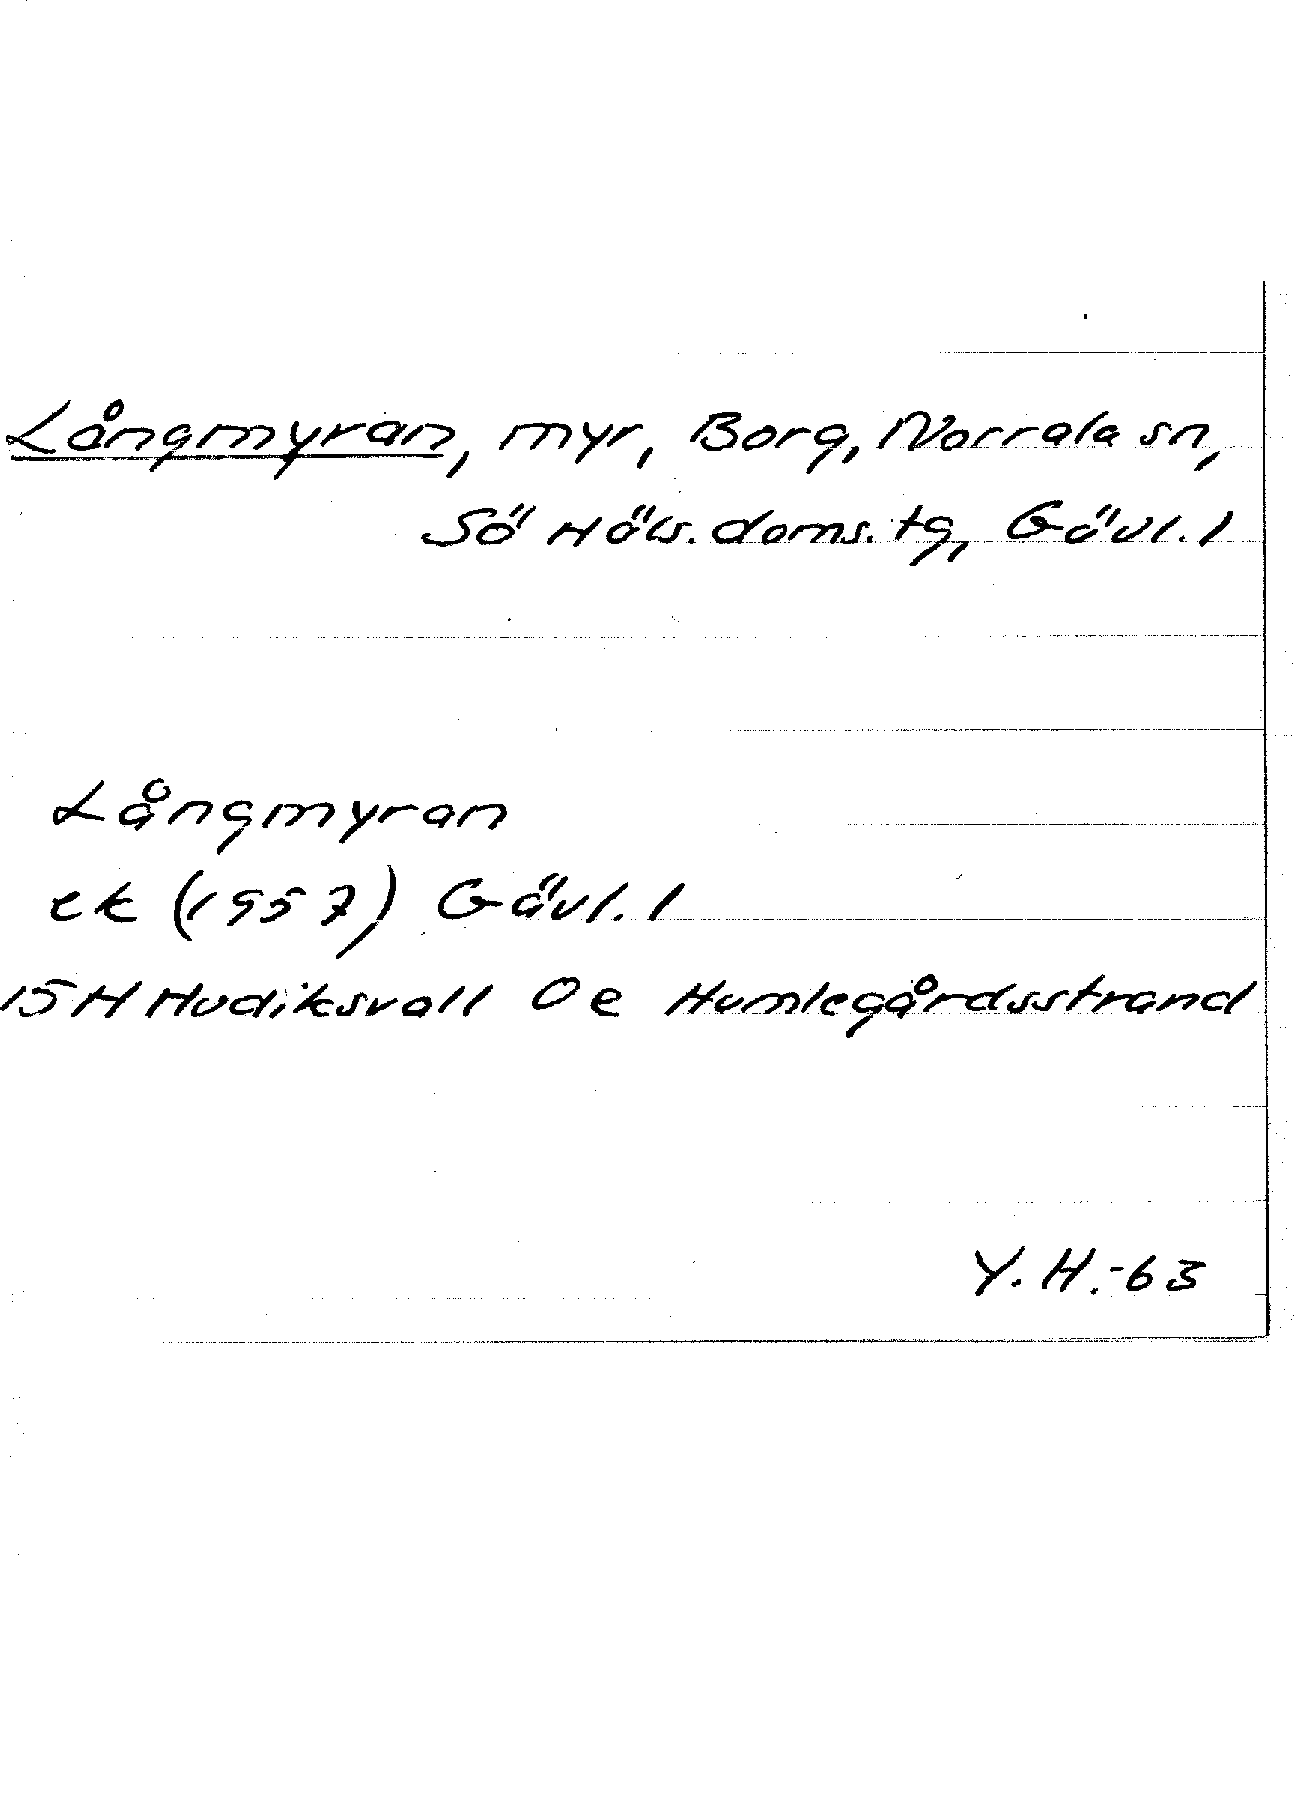 Långmyran, myr, Borg, Norrala sn,
Sö Häls. doms. tg, Gävl. l
Långmyran
ek (1957) Gävl. l
15H Hudiksvall 0e Humlegårdsstrand
Y. H.-63